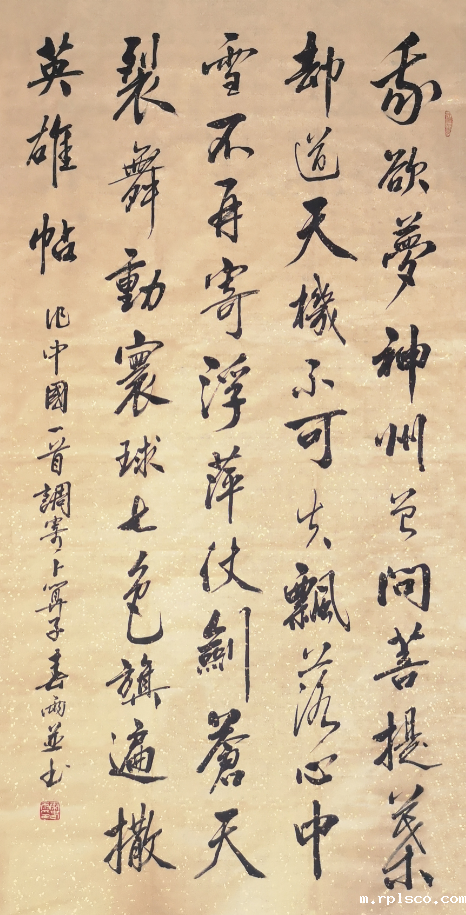 我欲夢神州曾问菩提葉
却道天機不可失飄落心中
雪不再寄浮萍仗劍蒼天
裂舞動寰球七色遍撒
英雄帖
作中國一首調寄卜算子春雨并书
m.rplsco.com